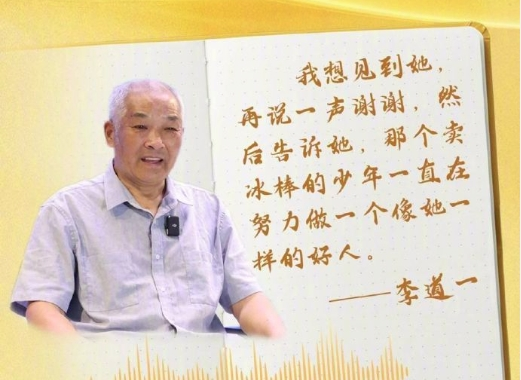 我想见到她，
再说一声谢谢，然
后告诉她，那个卖
冰棒的少年一直在
努力做一个像她一
样的好人。
——李道一